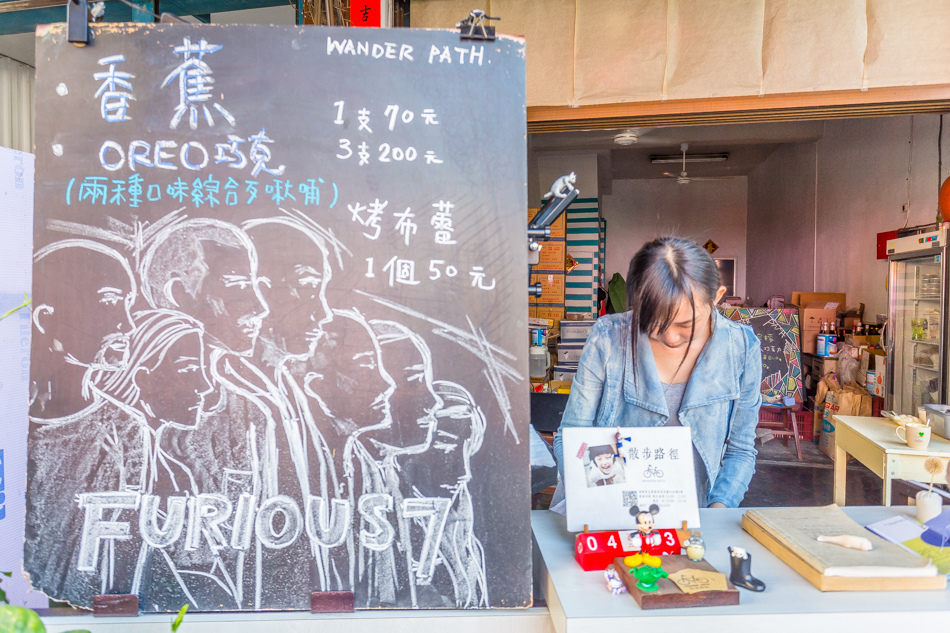 吉
香蕉
OREO巧克
(兩種口味綜合歹啾哺)
WANDER PATH.
1支70元
3支200元
烤布蕾
1個50元
FURIOUS 7
散步路徑
04
3